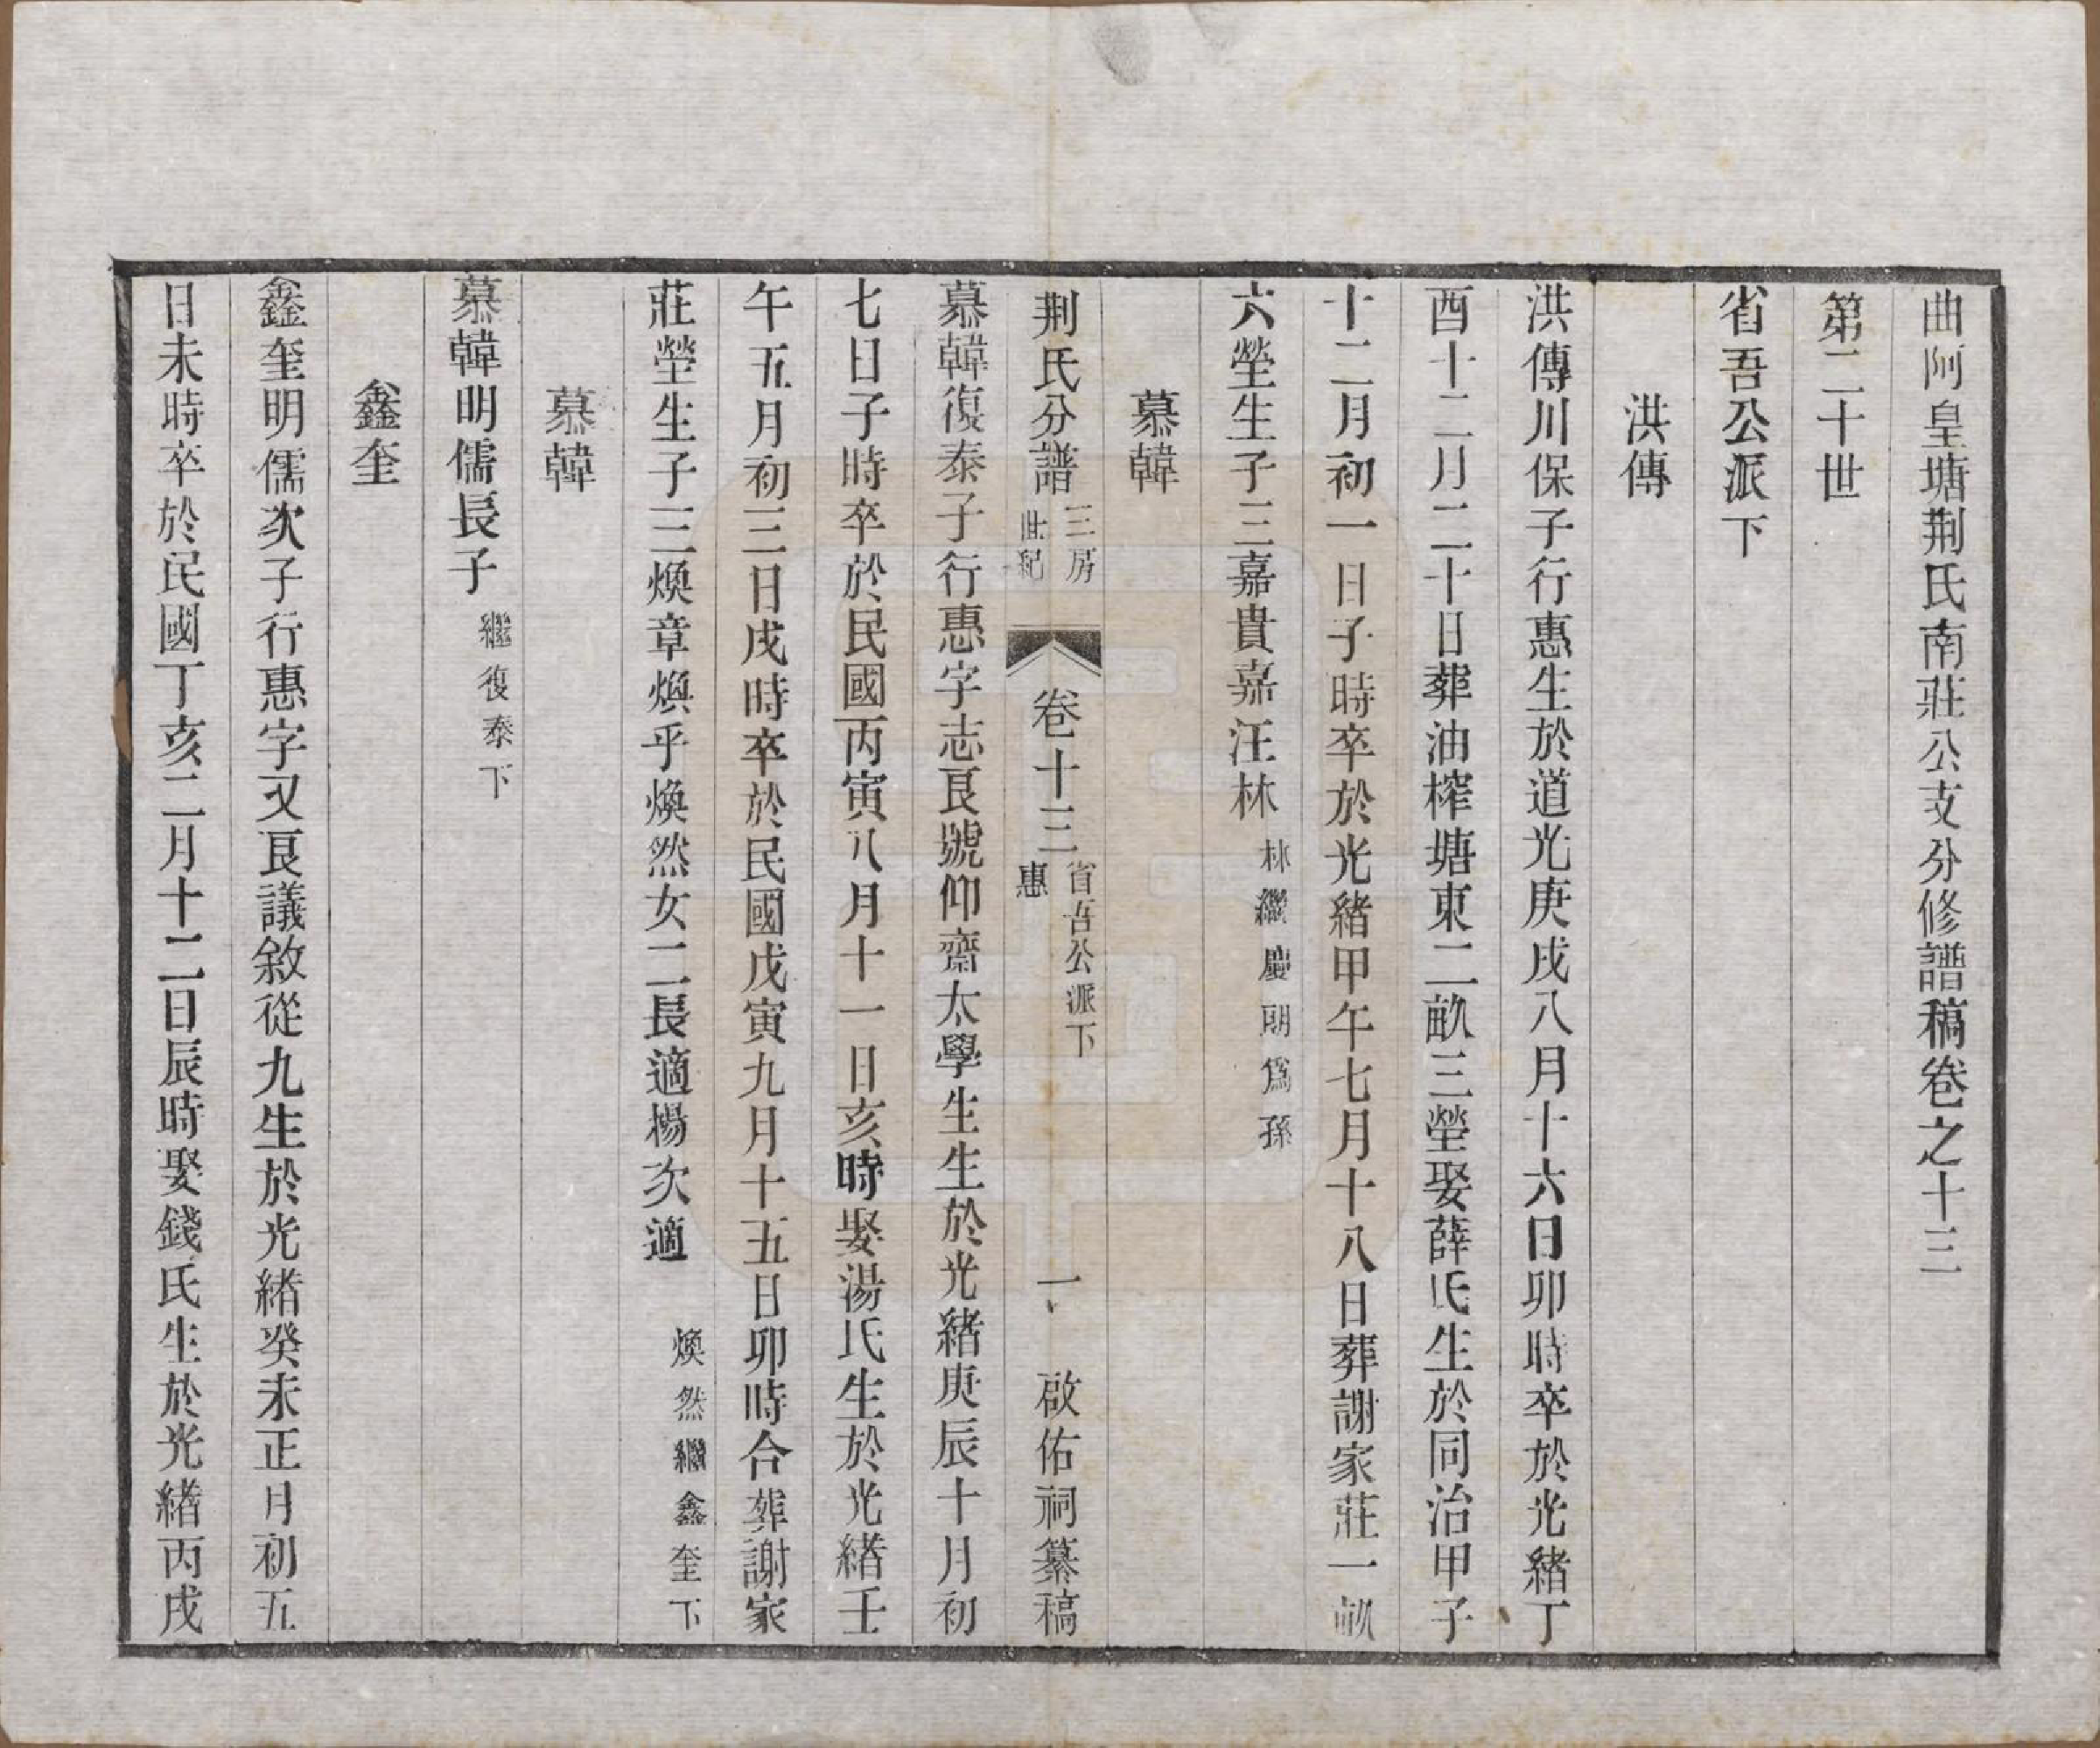 曲阿皇塘荆氏南莊公支分修譜稿卷之十三
第二十世
省吾公派下
洪傳
洪傳川保子行惠生於道光庚戌八月十六日卯時卒於光緒丁
酉十二月二十日葬油榨塘東二畝三塋娶薛氏生於同治甲子
十二月初一日子時卒於光緒甲午七月十八日葬謝家莊一畝
六塋生子三嘉貴嘉汪林 林繼慶朋爲孫
慕韓
荆氏分譜 三房 世紀 卷十三 省吾公派下 惠 一 啟佑祠纂稿
慕韓復泰子行惠字志艮號仰齋太學生生於光緒庚辰十月初
七日子時卒於民國丙寅八月十一日亥時娶湯氏生於光緒壬
午五月初三日戌時卒於民國戊寅九月十五日卯時合葬謝家
莊塋生子三煥章煥乎煥然女二長適楊次適 煥然繼鑫奎下
慕韓
慕韓明儒長子 繼復泰下
鑫奎
鑫奎明儒次子行惠字又艮議敘從九生於光緒癸未正月初五
日未時卒於民國丁亥二月十二日辰時娶錢氏生於光緒丙戌